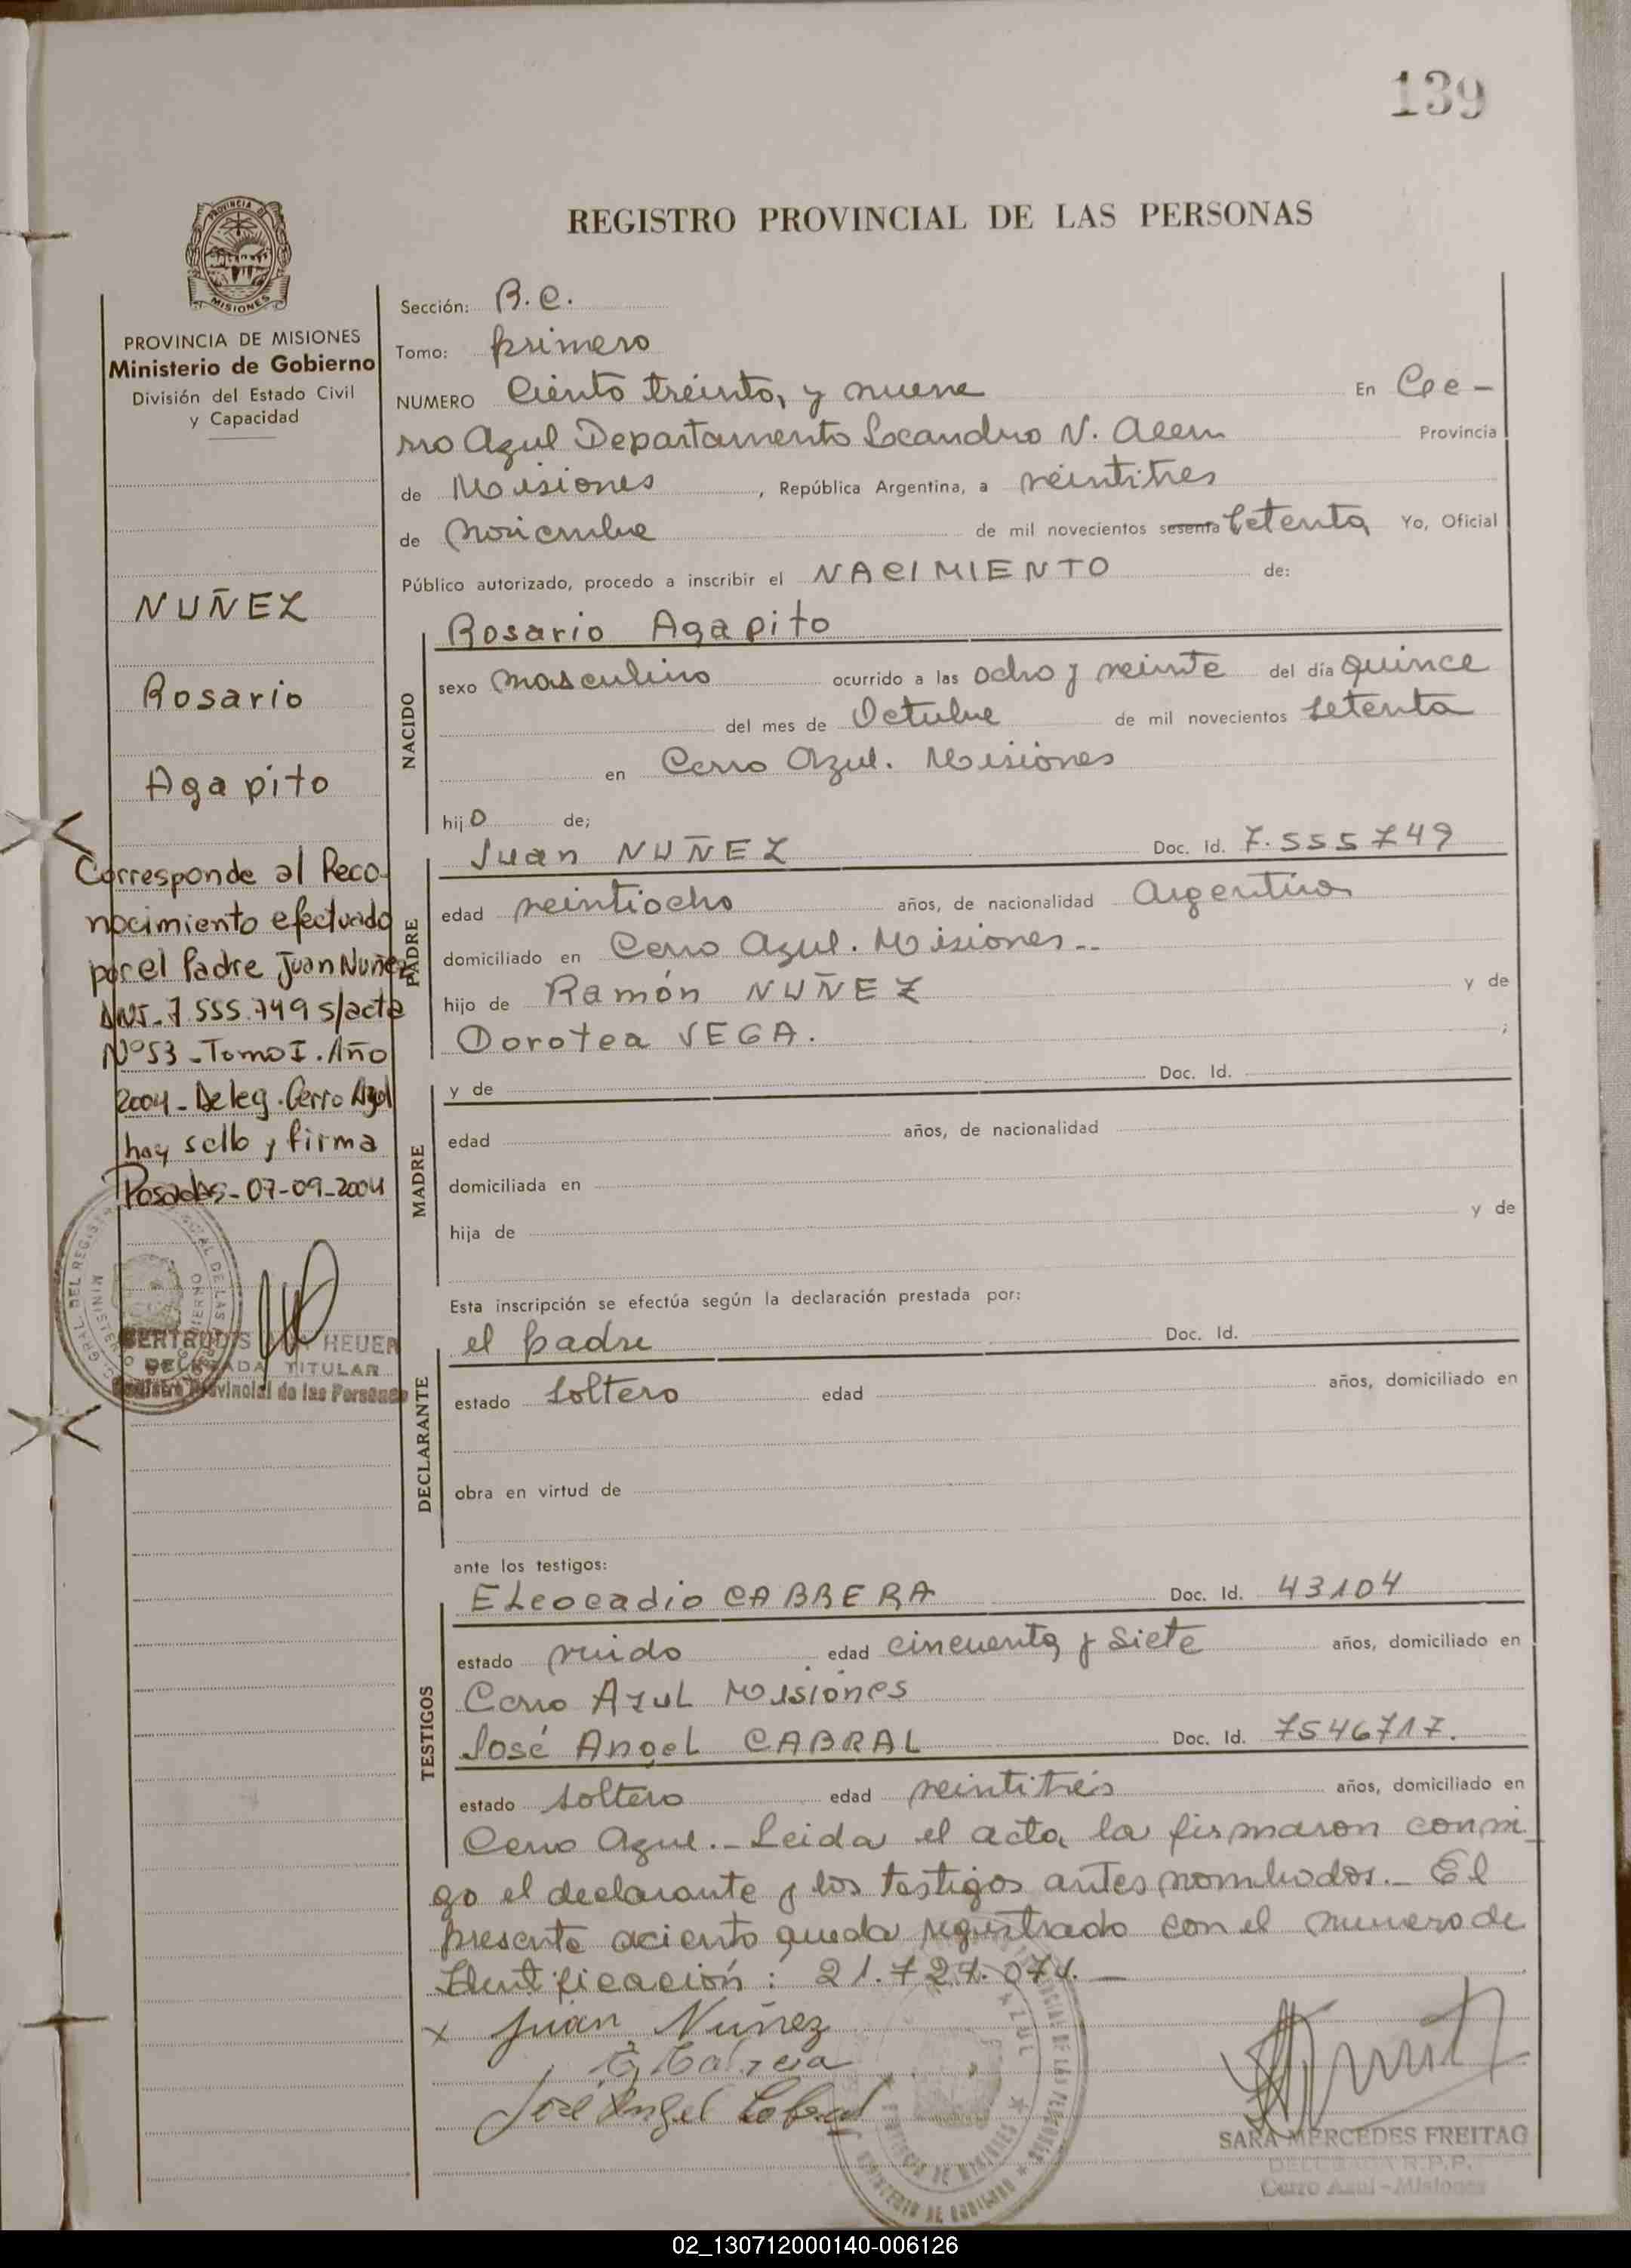 139
REGISTRO PROVINCIAL DE LAS PERSONAS
PROVINCIA DE
MISIONES
PROVINCIA DE MISIONES
Ministerio de Gobierno
División del Estado Civil
y Capacidad
NUÑEZ
Rosario
Agapito
Corresponde al Reco-
nocimiento efectuado
por el Padre Juan Nuñez
DNI-7.555.749 s/acta
Nº53-Tomo I. Año
2004-Deleg. Cerro Azul
hay sello y firma
Posadas-07-09-2004
GERTRUDIS HEUER
DELEGADA TITULAR
Registro Provincial de las Personas
Sección: R.C.
Tomo: primero
NUMERO Ciento treinta y nueve En Cer-
ro Azul Departamento Leandro N. Alem Provincia
de Misiones, República Argentina, a veintitres
de noviembre de mil novecientos sesenta setenta Yo, Oficial
Público autorizado, procedo a inscribir el NACIMIENTO de:
Rosario Agapito
NACIDO
sexo masculino ocurrido a las ocho y veinte del día quince
del mes de Octubre de mil novecientos setenta
en Cerro Azul. Misiones
hijo de;
Juan NUÑEZ Doc. Id. 7.555749
PADRE
edad veintiocho años, de nacionalidad Argentina
domiciliado en Cerro Azul. Misiones--
hijo de Ramón NUÑEZ y de
Dorotea VEGA. ;
y de Doc. Id.
MADRE
edad años, de nacionalidad
domiciliada en
hija de y de
Esta inscripción se efectúa según la declaración prestada por:
el padre Doc. Id.
DECLARANTE
estado soltero edad años, domiciliado en
obra en virtud de
ante los testigos:
ELeocadio CABRERA Doc. Id. 43104
TESTIGOS
estado viudo edad cincuenta y siete años, domiciliado en
Cerro AzuL Misiones
José AngeL CABRAL Doc. Id. 7546717.
estado soltero edad veintitrés años, domiciliado en
Cerro Azul.- Leida el acta, la firmaron conmi
go el declarante y los testigos antes nombrados.- El
presente aciento queda registrado con el numero de
Identificación: 21.724.074.-
x Juan Nuñez
José Angel Cabral
SARA MERCEDES FREITAG
DELEGADA R.P.P.
Cerro Azul - Misiones
PROVINCIA DE MISIONES
MINISTERIO DE GOBIERNO
02_130712000140-006126